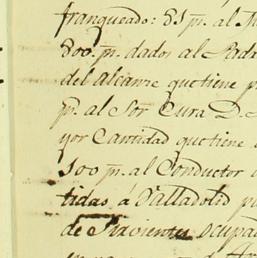 franqueado: 81 p.s al M
800 p.s dados al Padr
del alcanze que tiene p
p.s al Sor Cura D.
yor Cantidad que tiene
500 p.s al Conductor
tidas à Valladolid p
de Sirvientes ocupa